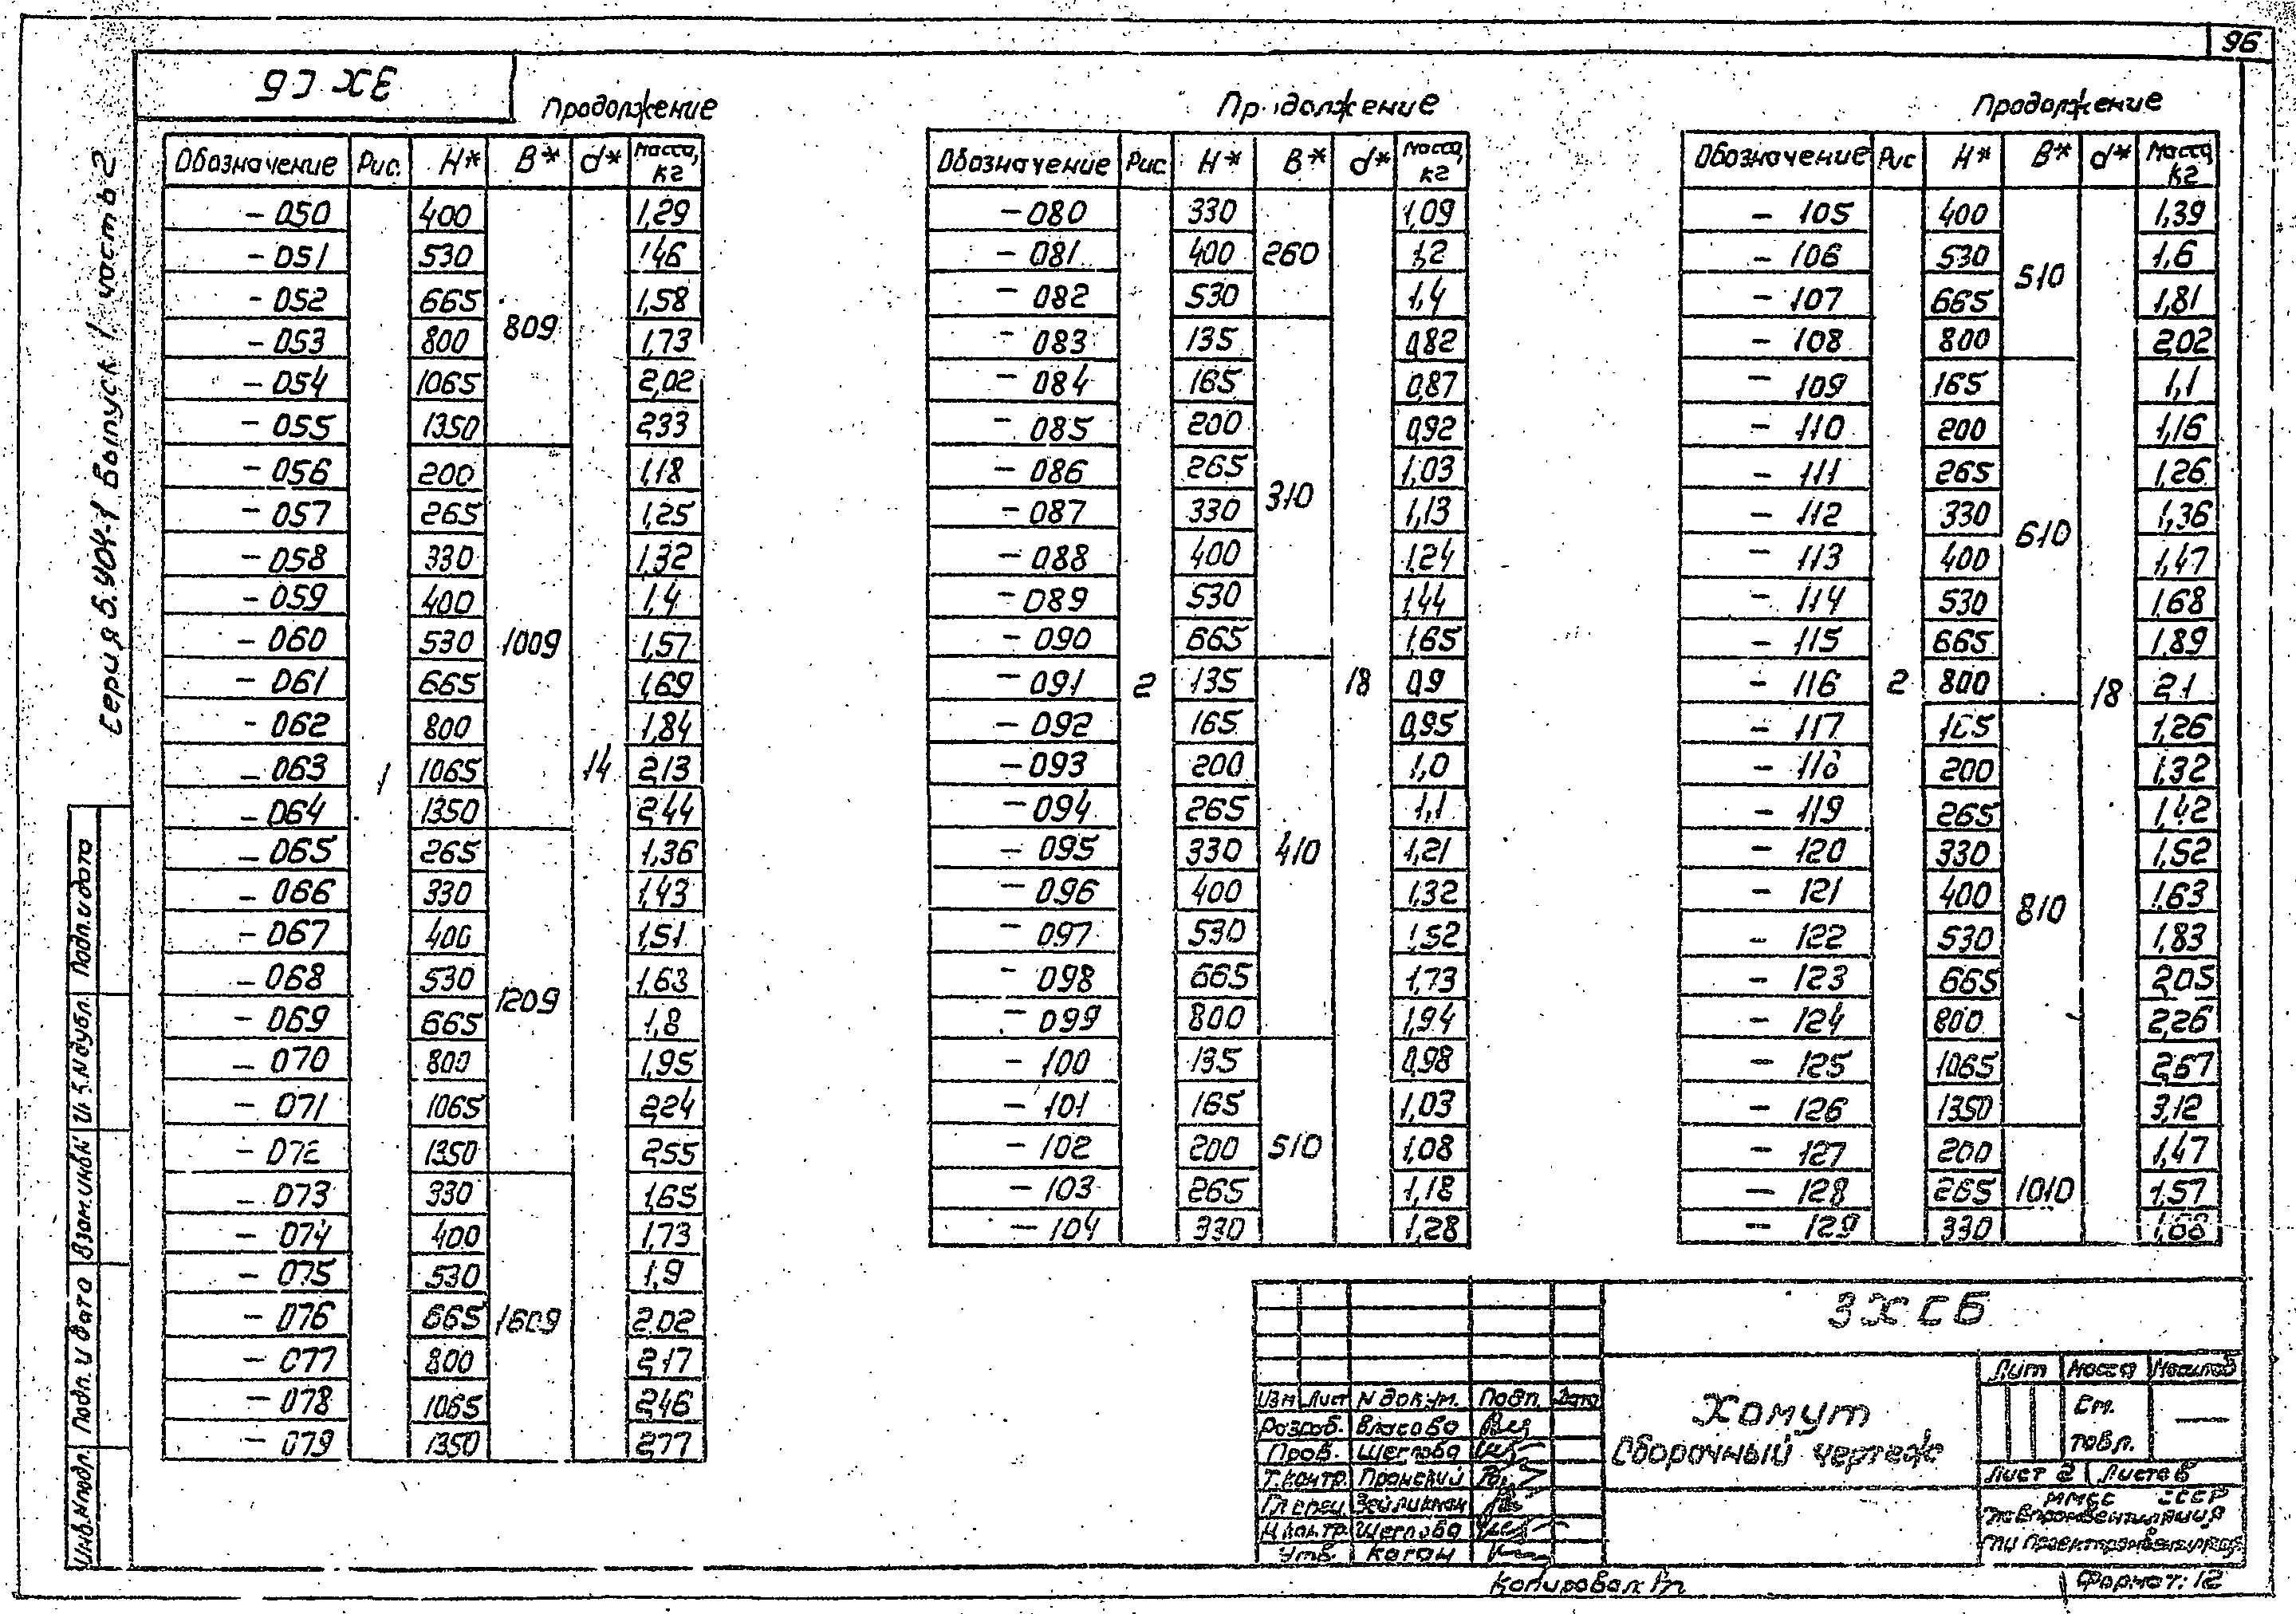 96
3ХСБ
Серия 5.904-1 Выпуск 1, часть 2
Продолжение
Обозначение Рис. H* B* d* Масса, кг
-050 400 1,29
-051 530 1,46
-052 665 1,58
-053 800 809 1,73
-054 1065 2,02
-055 1350 2,33
-056 200 1,18
-057 265 1,25
-058 330 1,32
-059 400 1,4
-060 530 1009 1,57
-061 665 1,69
-062 800 1,84
-063 1 1065 14 2,13
-064 1350 2,44
-065 265 1,36
-066 330 1,43
-067 400 1,51
-068 530 1,63
-069 665 1209 1,8
-070 800 1,95
-071 1065 2,24
-072 1350 2,55
-073 330 1,65
-074 400 1,73
-075 530 1,9
-076 665 1609 2,02
-077 800 2,17
-078 1065 2,46
-079 1350 2,77
Продолжение
Обозначение Рис H* B* d* Масса, кг
-080 330 1,09
-081 400 260 1,2
-082 530 1,4
-083 135 0,82
-084 165 0,87
-085 200 0,92
-086 265 1,03
-087 330 310 1,13
-088 400 1,24
-089 530 1,44
-090 665 1,65
-091 2 135 18 0,9
-092 165 0,95
-093 200 1,0
-094 265 1,1
-095 330 410 1,21
-096 400 1,32
-097 530 1,52
-098 665 1,73
-099 800 1,94
-100 135 0,98
-101 165 1,03
-102 200 510 1,08
-103 265 1,18
-104 330 1,28
Продолжение
Обозначение Рис H* B* d* Масса кг
-105 400 1,39
-106 530 510 1,6
-107 665 1,81
-108 800 2,02
-109 165 1,1
-110 200 1,16
-111 265 1,26
-112 330 610 1,36
-113 400 1,47
-114 530 1,68
-115 665 1,89
-116 2 800 18 2,1
-117 165 1,26
-118 200 1,32
-119 265 1,42
-120 330 1,52
-121 400 810 1,63
-122 530 1,83
-123 665 2,05
-124 800 2,26
-125 1065 2,67
-126 1350 3,12
-127 200 1,47
-128 265 1010 1,57
-129 330 1,68
Подп. и дата
Инв. N дубл.
Взам. инв. N
Подп. и дата
Инв. N подл.
3ХСБ
Изм Лист N докум. Подп. Дата
Разраб. Власова
Пров. Щеглова
Т. контр. Пронский
Гл спец Зейликман
Н контр. Щеглова
Утв. Коган
Хомут
Сборочный чертеж
Лит Масса Масштаб
См. табл. —
Лист 2 Листов
ММСС СССР
Главпромвентиляция
Копировал
Формат: 12